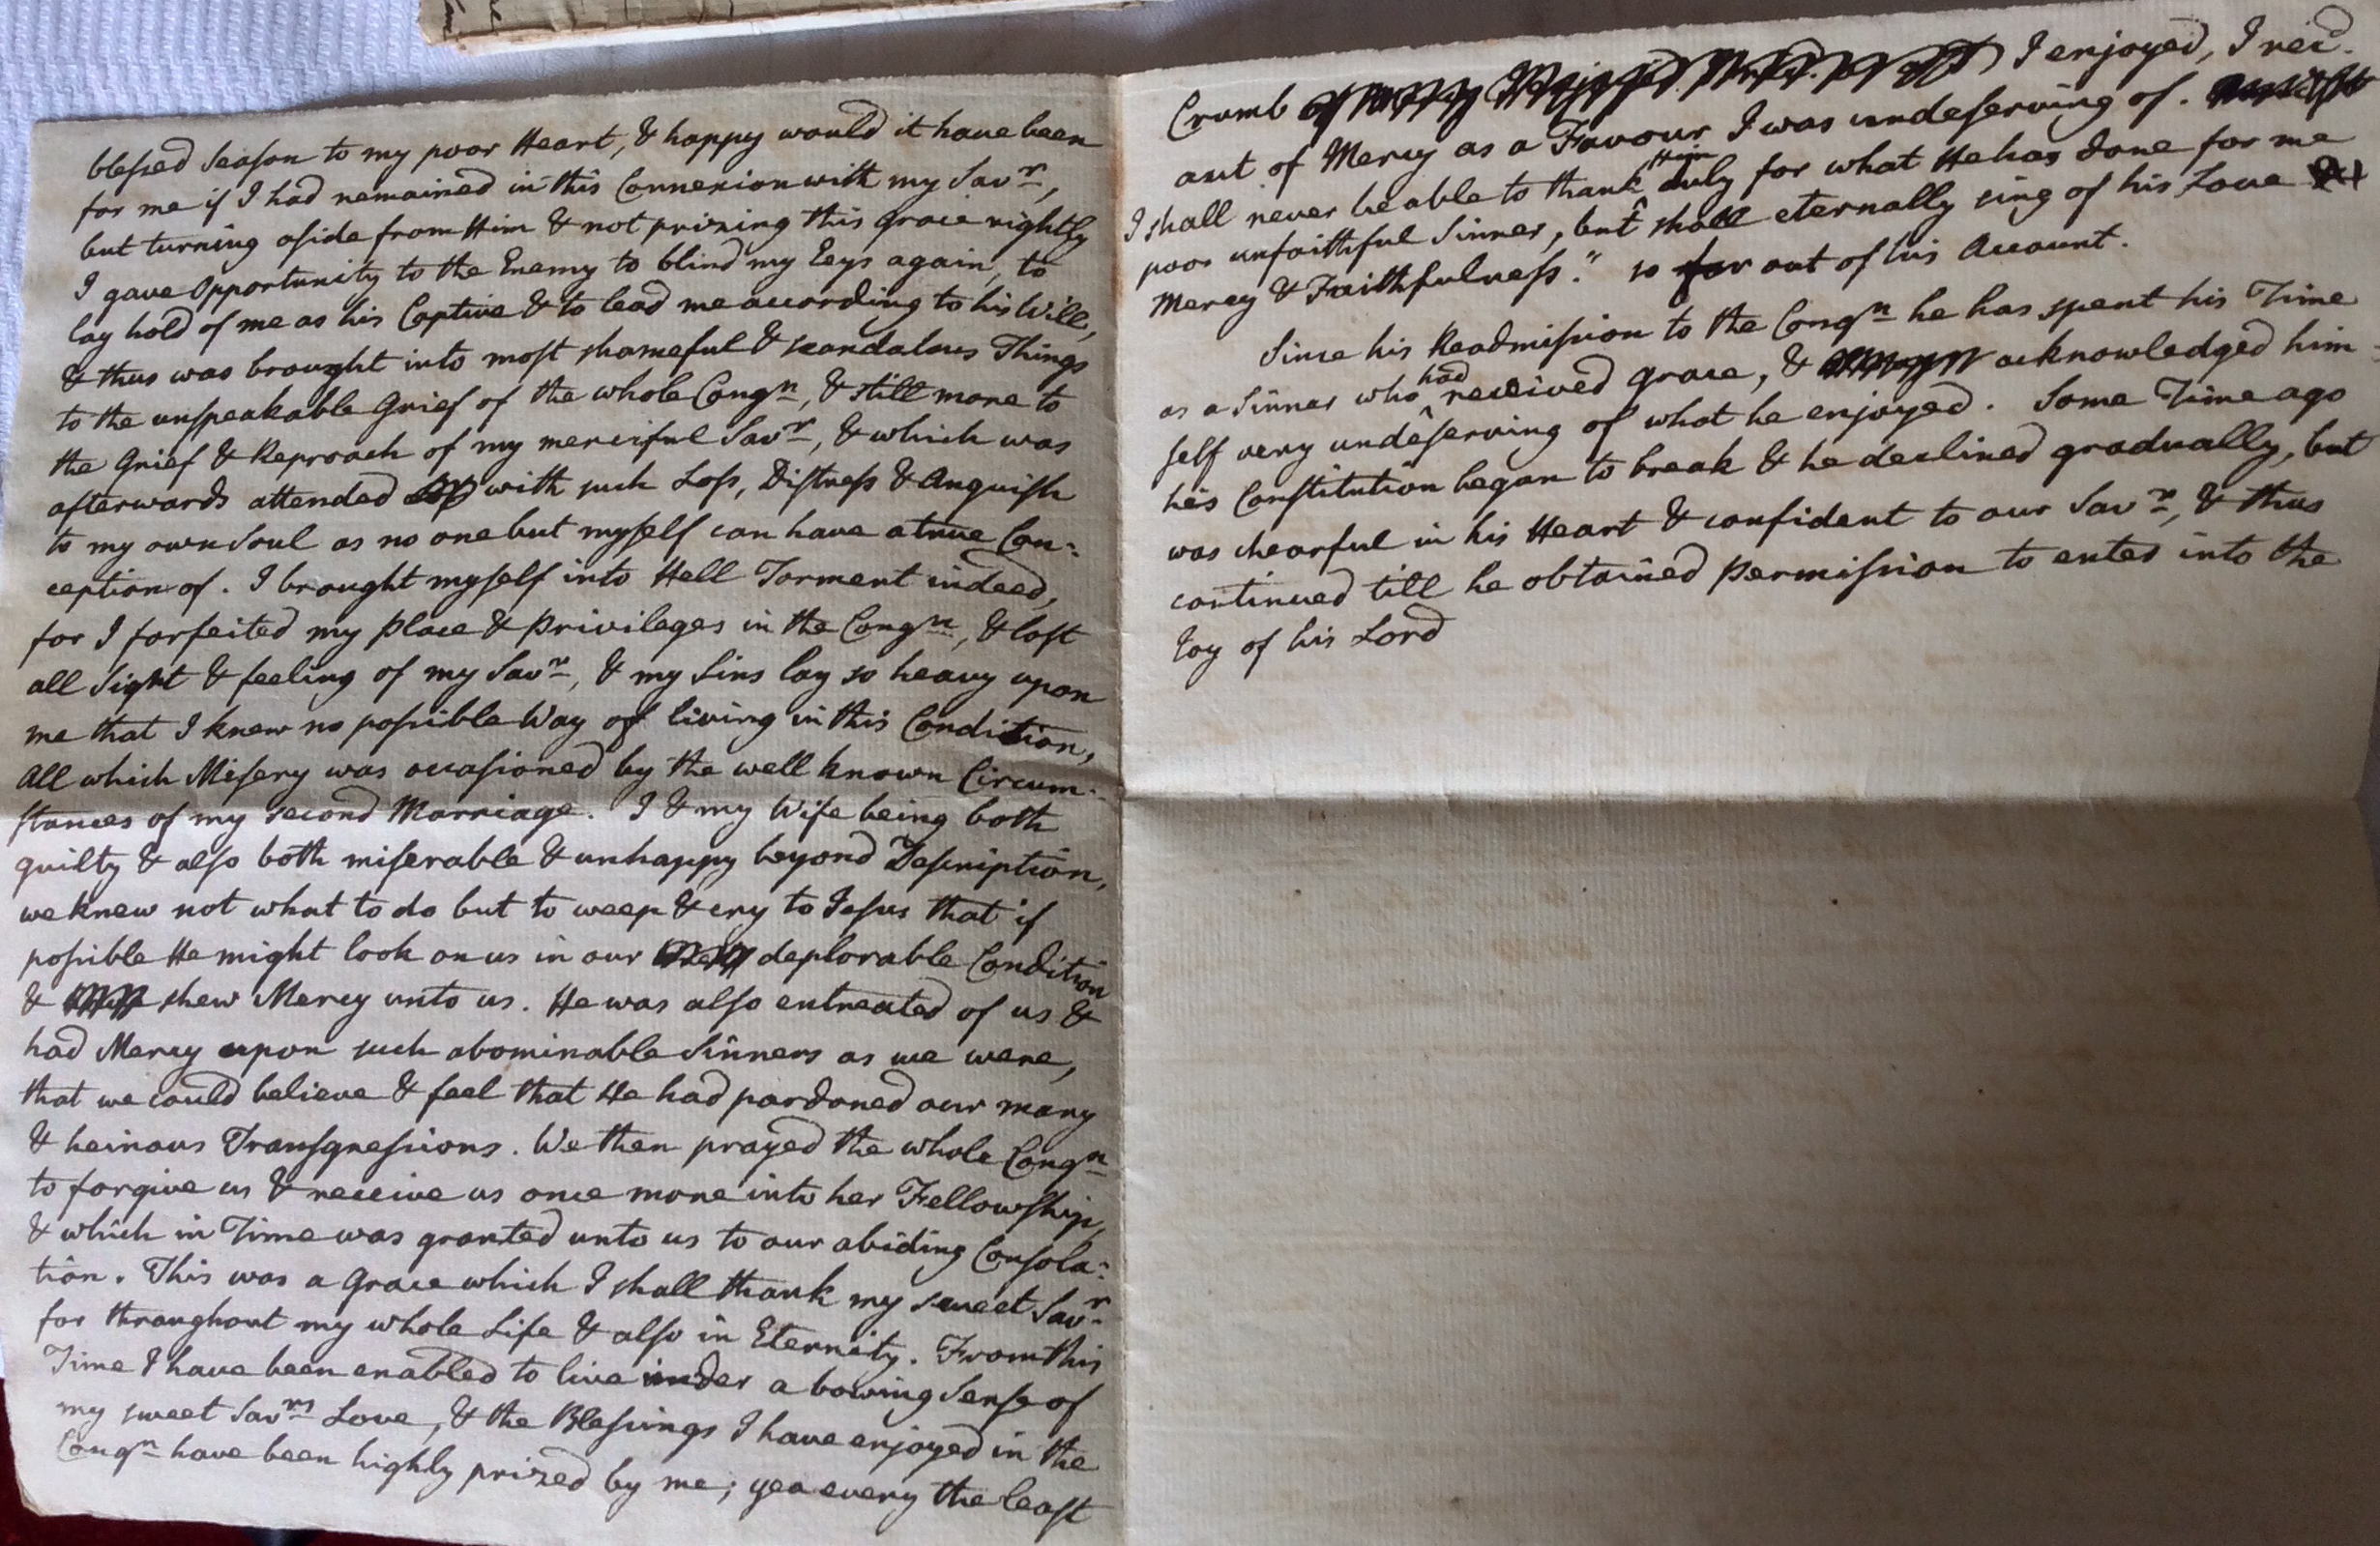 blessed Season to my poor Heart, & happy would it have been
for me if I had remained in this Connexion with my Savr,
but turning aside from Him & not prizing this grace rightly
I gave Opportunity to the Enemy to blind my Eys again, to
lay hold of me as his Captive & to lead me according to his Will,
& thus was brought into most shameful & scandalous Things
to the unspeakable Grief of the whole Congn, & still more to
the Grief & Reproach of my merciful Savr, & which was
afterwards attended with such Loss, Distress & Anguish
to my own Soul as no one but myself can have a true Con-
ception of. I brought myself into Hell Torment indeed,
for I forfeited my Place & Privileges in the Congn, & lost
all Sight & feeling of my Savr, & my Sins lay so heavy upon
me that I knew no possible Way of living in this Condition,
All which Misery was occasioned by the well known Circum-
stances of my second Marriage. I & my Wife being both
guilty & also both miserable & unhappy beyond Description,
we knew not what to do but to weep & cry to Jesus that if
possible He might look on us in our deplorable Condition
& shew Mercy unto us. He was also entreated of us &
had Mercy upon such abominable Sinners as we were,
that we could believe & feel that He had pardoned our many
& heinous Transgressions. We then prayed the whole Congn
to forgive us & receive us once more into her Fellowship,
& which in Time was granted unto us to our abiding Consola-
tion. This was a Grace which I shall thank my sweet Savr
for throughout my whole Life & also in Eternity. From this
Time I have been enabled to live under a bowing Sense of
my sweet Savrs Love, & the Blessings I have enjoyed in the
Congn have been highly prized by me; yea every the least
Crumb I enjoyed, I recd.
out of Mercy as a Favour I was undeserving of.
I shall never be able to thank Him duly for what He has done for me
poor unfaithful Sinner, but shall eternally sing of his Love
Mercy & Faithfulness." so far out of his Account.
Since his Readmission to the Congn he has spent his Time
as a Sinner who had received grace, & acknowledged him-
self very undeserving of what he enjoyed. Some Time ago
his Constitution began to break & he declined gradually, but
was chearful in his Heart & confident to our Savr, & thus
continued till he obtained Permission to enter into the
Joy of his Lord